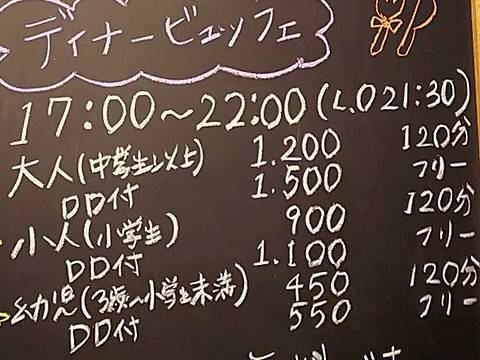 ディナービュッフェ
17:00～22:00(L.O 21:30)
大人(中学生以上) 1.200 120分
DD付 1.500 フリー
小人(小学生) 900 120分
DD付 1.100 フリー
幼児(3歳～小学生未満) 450 120分
DD付 550 フリー